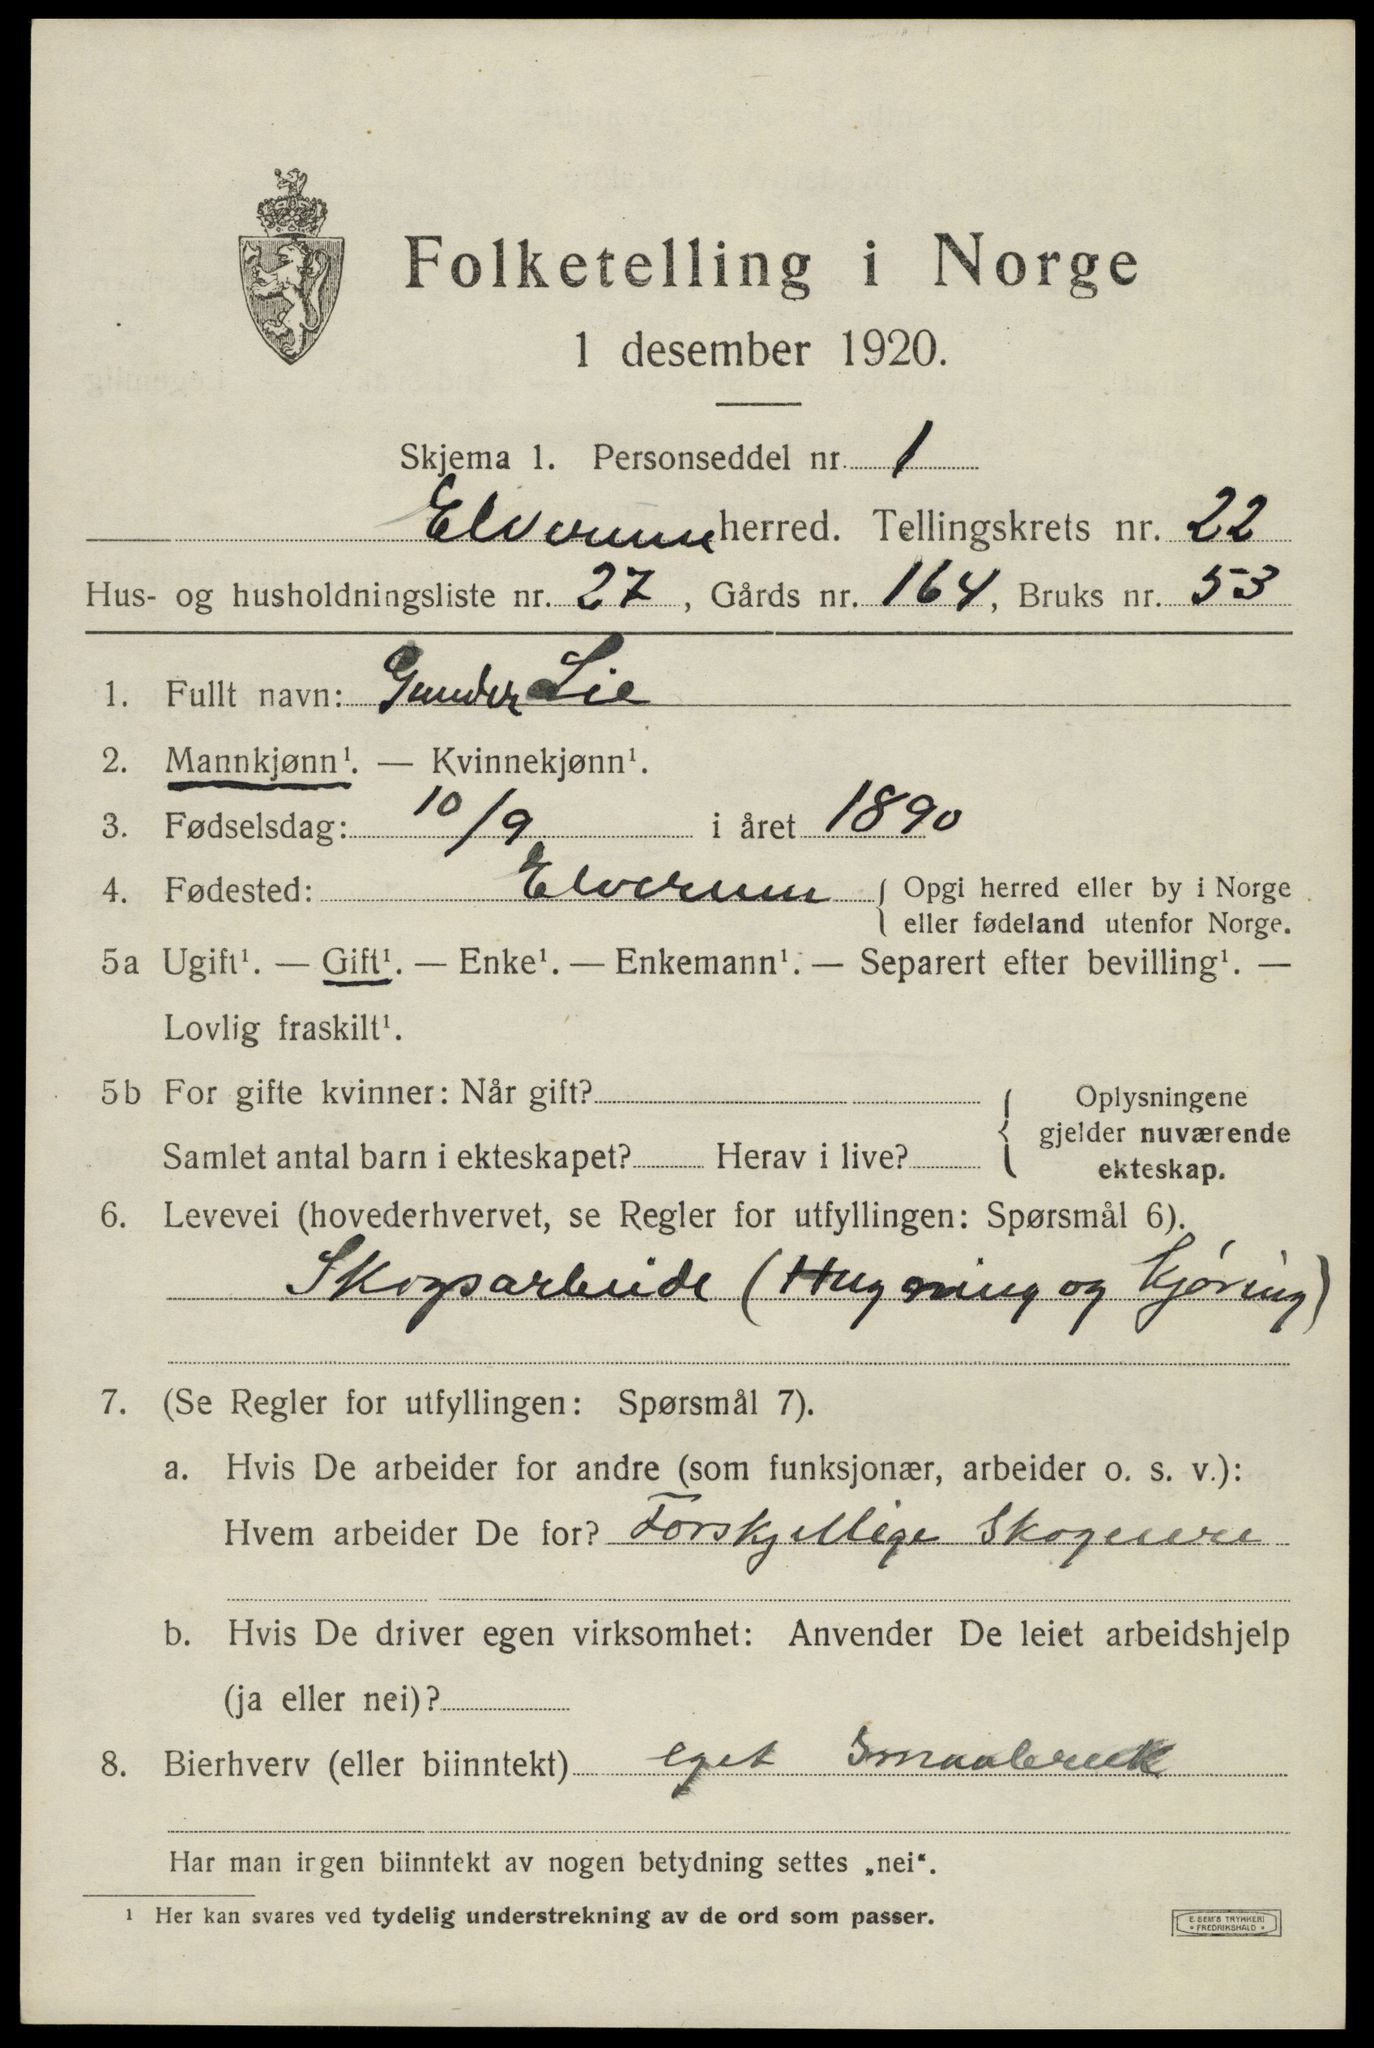 Folketelling i Norge
1 desember 1920.
Skjema 1. Personseddel nr. 1
Elverum herred. Tellingskrets nr. 22
Hus- og husholdningsliste nr. 27, Gårds nr. 164, Bruks nr. 53
1. Fullt navn: Gunder Lie
2. Mannkjønn¹. — Kvinnekjønn¹.
3. Fødselsdag: 10/9 i året 1890
4. Fødested: Elverum { Opgi herred eller by i Norge
eller fødeland utenfor Norge.
5a Ugift¹. — Gift¹. — Enke¹. — Enkemann¹. — Separert efter bevilling¹. —
Lovlig fraskilt¹.
5b For gifte kvinner: Når gift? { Oplysningene
gjelder nuværende
Samlet antal barn i ekteskapet? Herav i live? ekteskap.
6. Levevei (hovederhvervet, se Regler for utfyllingen: Spørsmål 6).
Skogsarbeide (Hugning og kjøring)
7. (Se Regler for utfyllingen: Spørsmål 7).
a. Hvis De arbeider for andre (som funksjonær, arbeider o. s. v.):
Hvem arbeider De for? Forskjellige Skogeiere
b. Hvis De driver egen virksomhet: Anvender De leiet arbeidshjelp
(ja eller nei)?
8. Bierhverv (eller biinntekt) eget Smaabruk
Har man irgen biinntekt av nogen betydning settes „nei“.
¹ Her kan svares ved tydelig understrekning av de ord som passer.
E. SEM'S TRYKKERI
* FREDRIKSHALD *